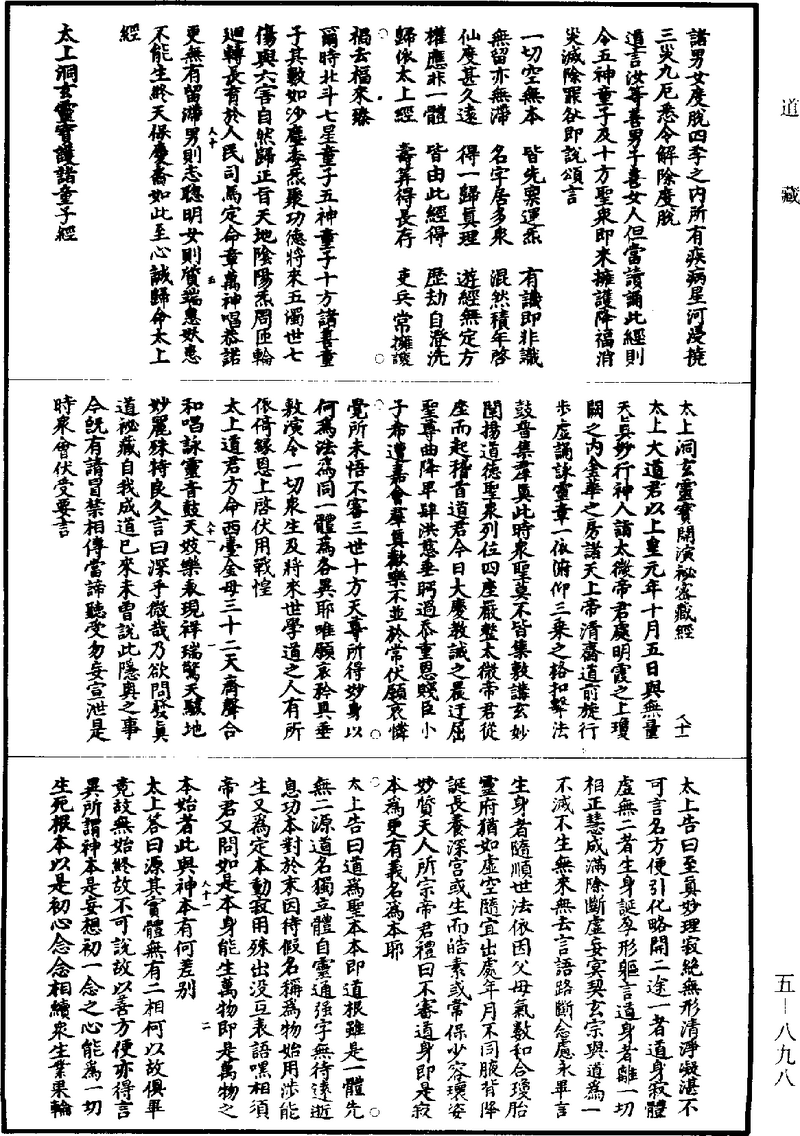 道藏
五—八九八
諸男女度脫四季之內所有疾病星河浸撓
三災九厄悉令解除度脫
道言汝等善男子善女人但當讀誦此經則
令五神童子及十方聖衆即來擁護降福消
災滅除罪欲即說頌言
一切空無本　皆先稟運炁　有識即非識
無留亦無滯　名字居多衆　混然積年啓
仙度甚久遠　得一歸眞理　遊經無定方
權應非一體　皆由此經得　歷劫自澄洗
歸依太上經　壽筭得長存　吏兵常擁護
禍去福來臻
爾時北斗七星童子五神童子十方諸善童
子其數如沙塵委炁聚功德將來五濁世七
傷與六害自然歸正旨天地陰陽炁周匝輪
廻轉長有於人民司馬定命章萬神唱恭諾
更無有留滯男則志聰明女則質端惠妖患
不能生終天保慶齋如此至心誠歸命太上
經
太上洞玄靈寶護諸童子經
太上洞玄靈寶開演祕密藏經
太上大道君以上皇元年十月五日與無量
天眞妙行神人詣太微帝君處明霞之上瓊
闕之內金華之房諸天上帝清齋道前旋行
步虛誦詠靈章一依俯仰三乘之格扣擊法
鼓普集羣眞此時衆聖莫不皆集敷講玄妙
闡揚道德聖衆列位四座嚴整太微帝君從
座而起稽首道君今日大慶教誡之晨迂屈
聖尊曲降卑肆洪慈垂眄過忝重恩賤臣小
子希遭嘉會羣眞歡樂不並於常伏願哀憐
覺所未悟不審三世十方天尊所得妙身以
何爲法爲同一體爲各異耶唯願哀矜具垂
敷演令一切衆生及將來世學道之人有所
依倚緣恩上啓伏用戰惶
太上道君方命西臺金母三十二天齊聲合
和唱詠靈音鼓天妓樂表現祥瑞驚天駭地
妙麗殊特良久言曰深乎微哉乃欲問發眞
道祕藏自我成道已來未曾說此隱奧之事
今旣有請冒禁相傳當諦聽受勿妄宣泄是
時衆會伏受要言
太上告曰至眞妙理寂絕無形清淨凝湛不
可言名方便引化略開二途一者道身寂體
虛無二者生身誕孕形軀言道身者離一切
相正慧成滿除斷虛妄冥契玄宗與道爲一
不滅不生無來無去言語路斷念處永畢言
生身者隨順世法依因父母氣數和合瓊胎
靈府猶如虛空隨宜出處年月不同腋背降
誕長養深宮或生而皓素或常保少容瓌姿
妙質天人所宗帝君禮曰不審道身即是寂
本爲更有義名爲本耶
太上告曰道爲聖本本即道根雖是一體先
無二源道名獨立體自靈通强字無待遠逝
息功本對於末因待假名稱爲物始用涉能
生又爲定本動寂用殊出沒互表語嘿相須
帝君又問如是本身能生萬物即是萬物之
本始者此與神本有何差別
太上答曰源其實體無有二相何以故俱畢
竟故無始終故不可說故以善方便亦得言
異所謂神本是妄想初一念之心能爲一切
生死根本以是初心念念相續衆生業果輪